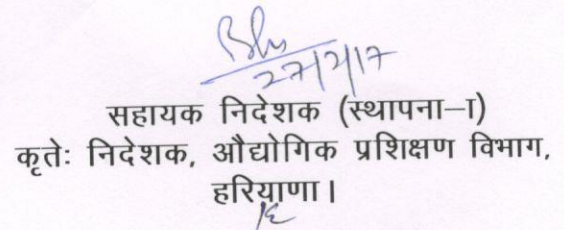 27/2/17
सहायक निदेशक (स्थापना–I)
कृतेः निदेशक, औद्योगिक प्रशिक्षण विभाग,
हरियाणा।